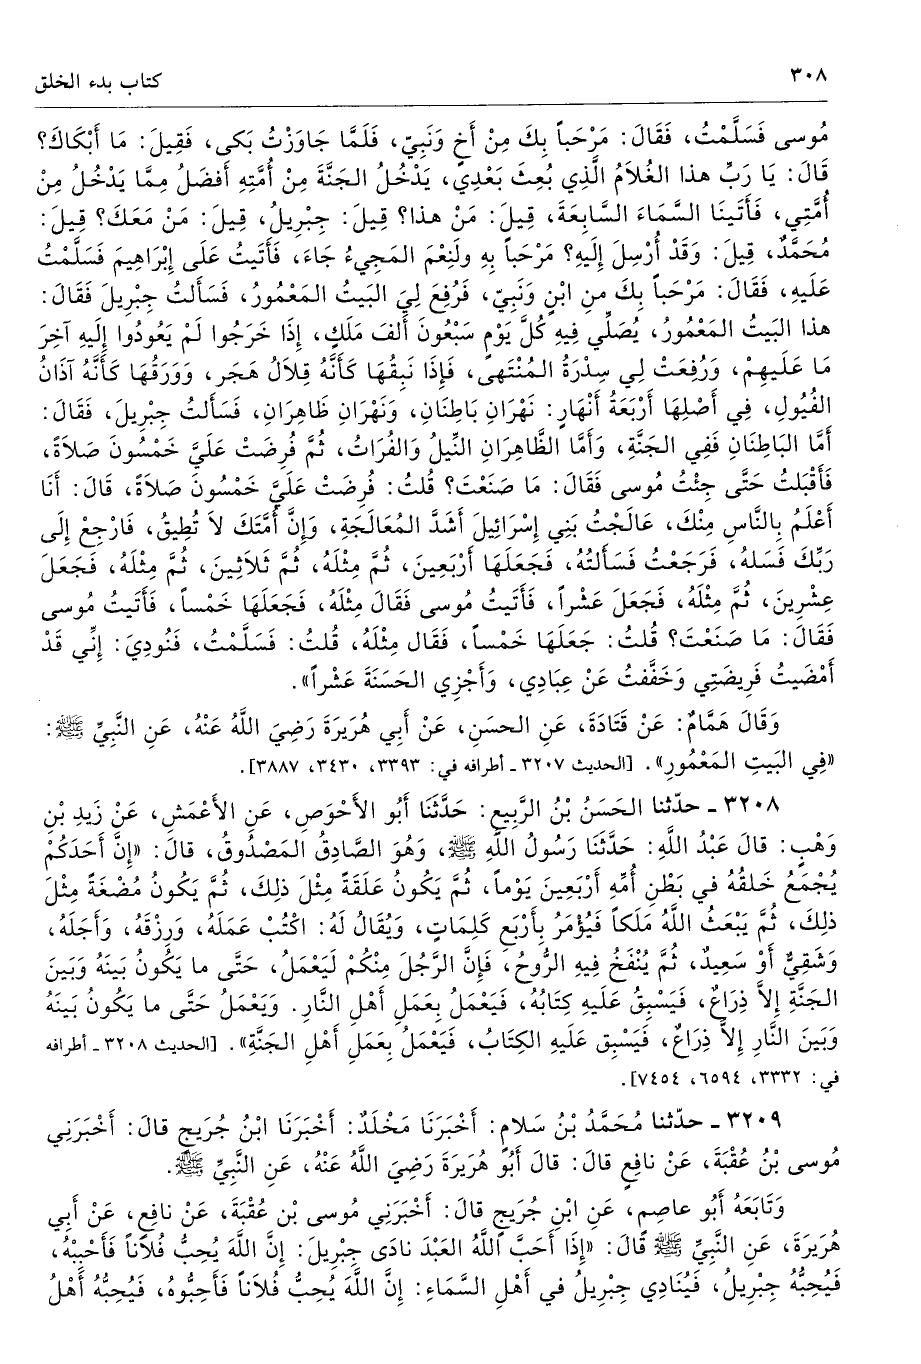 ٣٠٨
كتاب بدء الخلق
مُوسى فَسَلَّمْتُ، فَقَالَ: مَرْحَباً بِكَ مِنْ أَخٍ وَنَبِيّ، فَلَمَّا جَاوَزْتُ بَكى، فَقِيلَ: مَا أَبْكَاكَ؟
قَالَ: يَا رَبِّ هذا الغُلاَمُ الَّذِي بُعِثَ بَعْدِي، يَدْخُلُ الجَنَّةَ مِنْ أُمَّتِهِ أَفضَلُ مِمَّا يَدْخُلُ مِنْ
أُمَّتِي، فَأَتَينَا السَّمَاءَ السَّابِعَةَ، قِيلَ: مَنْ هذا؟ قِيلَ: جِبْرِيلُ، قِيلَ: مَنْ مَعَكَ؟ قِيلَ:
مُحَمَّدٌ، قِيلَ: وَقَدْ أُرْسِلَ إِلَيهِ؟ مَرْحَباً بِهِ ولَنِعْمَ المَجِيءُ جَاءَ، فَأَتَيتُ عَلَى إِبْرَاهِيمَ فَسَلَّمْتُ
عَلَيهِ، فَقَالَ: مَرْحَباً بِكَ منِ ابْنٍ وَنَبِيّ، فَرُفِعَ لِيَ البَيتُ المَعْمُورُ، فَسَأَلتُ جِبْرِيلَ فَقَالَ:
هذا البَيتُ المَعْمُورُ، يُصَلِّي فِيهِ كُلَّ يَوْمٍ سَبْعُونَ أَلفَ مَلَكٍ، إِذَا خَرَجُوا لَمْ يَعُودُوا إِلَيهِ آخِرَ
مَا عَلَيهِمْ، وَرُفِعَتْ لِي سِدْرَةُ المُنْتَهى، فَإِذَا نَبِقُهَا كَأَنَّهُ قِلاَلُ هَجَر، وَوَرَقُهَا كَأَنَّهُ آذَانُ
الفُيُولِ، فِي أَصْلِهَا أَرْبَعَةُ أَنْهَارٍ: نَهْرَانِ بَاطِنَانِ، وَنَهْرَانِ ظَاهِرَانِ، فَسَأَلتُ جِبْرِيلَ، فَقَالَ:
أَمَّا البَاطِنَانِ فَفِي الجَنَّةِ، وَأَمَّا الظَّاهِرَانِ النِّيلُ وَالفُرَاتُ، ثُمَّ فُرِضَتْ عَلَيَّ خَمْسُونَ صَلاَةً،
فَأَقْبَلتُ حَتَّى جِئْتُ مُوسى فَقَالَ: مَا صَنَعْتَ؟ قُلتُ: فُرِضَتْ عَلَيَّ خَمْسُونَ صَلاَةً، قَالَ: أَنَا
أَعْلَمُ بِالنَّاسِ مِنْكَ، عَالَجْتُ بَنِي إِسْرَائِيلَ أَشَدَّ المُعَالَجَةِ، وَإِنَّ أُمَّتَكَ لاَ تُطِيقُ، فَارْجِعْ إِلَى
رَبِّكَ فَسَلهُ، فَرَجَعْتُ فَسَأَلتُهُ، فَجَعَلَهَا أَرْبَعِينَ، ثُمَّ مِثْلَهُ، ثُمَّ ثَلاَثِينَ، ثُم مِثْلَهُ، فَجَعَلَ
عِشْرِينَ، ثُمَّ مِثْلَهُ، فَجَعَلَ عَشْراً، فَأَتَيتُ مُوسى فَقَالَ مِثْلَهُ، فَجَعَلَهَا خَمْساً، فَأَتَيتُ مُوسى
فَقَالَ: مَا صَنَعْتَ؟ قُلتُ: جَعَلَهَا خَمْساً، فَقَال مِثْلَهُ، قُلتُ: فَسَلَّمْتُ، فَنُودِيَ: إِنِّي قَدْ
أَمْضَيتُ فَرِيضَتِي وَخَفَّفتُ عَنْ عِبَادِي، وَأَجْزِي الحَسَنَةَ عَشْراً».
وَقَالَ هَمَّامٌ: عَنْ قَتَادَةَ، عَنِ الحسَنِ، عَنْ أَبِي هُرَيرَةَ رَضِيَ اللَّهُ عَنْهُ، عَنِ النَّبِيِّ ﷺ:
«فِي البَيتِ المَعْمُورِ». [الحديث ٣٢٠٧ ـ أطرافه في: ٣٣٩٣، ٣٤٣٠، ٣٨٨٧].
٣٢٠٨ ـ حدّثنا الحَسَنُ بْنُ الرَّبِيعِ: حَدَّثَنَا أَبُو الأَحْوَصِ، عَنِ الأَعْمَشِ، عَنْ زَيدِ بْنِ
وَهْبٍ: قالَ عَبْدُ اللَّهِ: حَدَّثَنَا رَسُولُ اللَّهِ ﷺ، وَهُوَ الصَّادِقُ المَصْدُوقُ، قالَ: «إِنَّ أَحَدَكُمْ
يُجْمَعُ خَلقُهُ في بَطْنِ أُمِّهِ أَرْبَعِينَ يَوْماً، ثُمَّ يَكُونُ عَلَقَةً مِثْلَ ذلِكَ، ثُمَّ يَكُونُ مُضْغَةً مِثْلَ
ذلِكَ، ثُمَّ يَبْعَثُ اللَّهُ مَلَكاً فَيُؤْمَرُ بِأَرْبَعِ كَلِمَاتٍ، وَيُقَالُ لَهُ: اكْتُبْ عَمَلَهُ، وَرِزْقَهُ، وَأَجَلَهُ،
وَشَقِيٌّ أَوْ سَعِيدٌ، ثُمَّ يُنْفَخُ فِيهِ الرُّوحُ، فَإِنَّ الرَّجُلَ مِنْكُمْ لَيَعْمَلُ، حَتَّى ما يَكُونُ بَينَهُ وَبَينَ
الجَنَّةِ إِلاَّ ذِرَاعٌ، فَيَسْبِقُ عَلَيهِ كِتَابُهُ، فَيَعْمَلُ بِعَمَلِ أَهْلِ النَّارِ. وَيَعْمَلُ حَتَّى ما يَكُونُ بَينَهُ
وَبَينَ النَّارِ إِلاَّ ذِرَاعٌ، فَيَسْبِق عَلَيهِ الكِتَابُ، فَيَعْمَلُ بِعَمَلِ أَهْلِ الجَنَّةِ». [الحديث ٣٢٠٨ ـ أطرافه
في: ٣٣٣٢، ٦٥٩٤، ٧٤٥٤].
٣٢٠٩ ـ حدّثنا مُحَمَّدُ بْنُ سَلامٍ: أَخْبَرَنَا مَخْلَدٌ: أَخْبَرَنَا ابْنُ جُرَيجٍ قالَ: أَخْبَرَنِي
مُوسى بْنُ عُقْبَةَ، عَنْ نافِعٍ قالَ: قالَ أَبُو هُرَيرَةَ رَضِيَ اللَّهُ عَنْهُ، عَنِ النَّبِيِّ ﷺ.
وَتَابَعَهُ أَبُو عاصِمٍ، عَنِ ابْنِ جُرَيجٍ قالَ: أَخْبَرَنِي مُوسى بْنِ عُقْبَةَ، عَنْ نافِعٍ، عَنْ أَبِي
هُرَيرَةَ، عَنِ النَّبِيِّ ﷺ قالَ: «إِذَا أَحَبَّ اللَّهُ العَبْدَ نادَى جِبْرِيلَ: إِنَّ اللَّهَ يُحِبُّ فُلاَناً فَأَحْبِبْهُ،
فَيُحِبُّهُ جِبْرِيلُ، فَيُنَادِي جِبْرِيلُ في أَهْلِ السَّمَاءِ: إِنَّ اللَّهَ يُحِبُّ فُلاَناً فَأَحِبُّوهُ، فَيُحِبُّهُ أَهْلُ